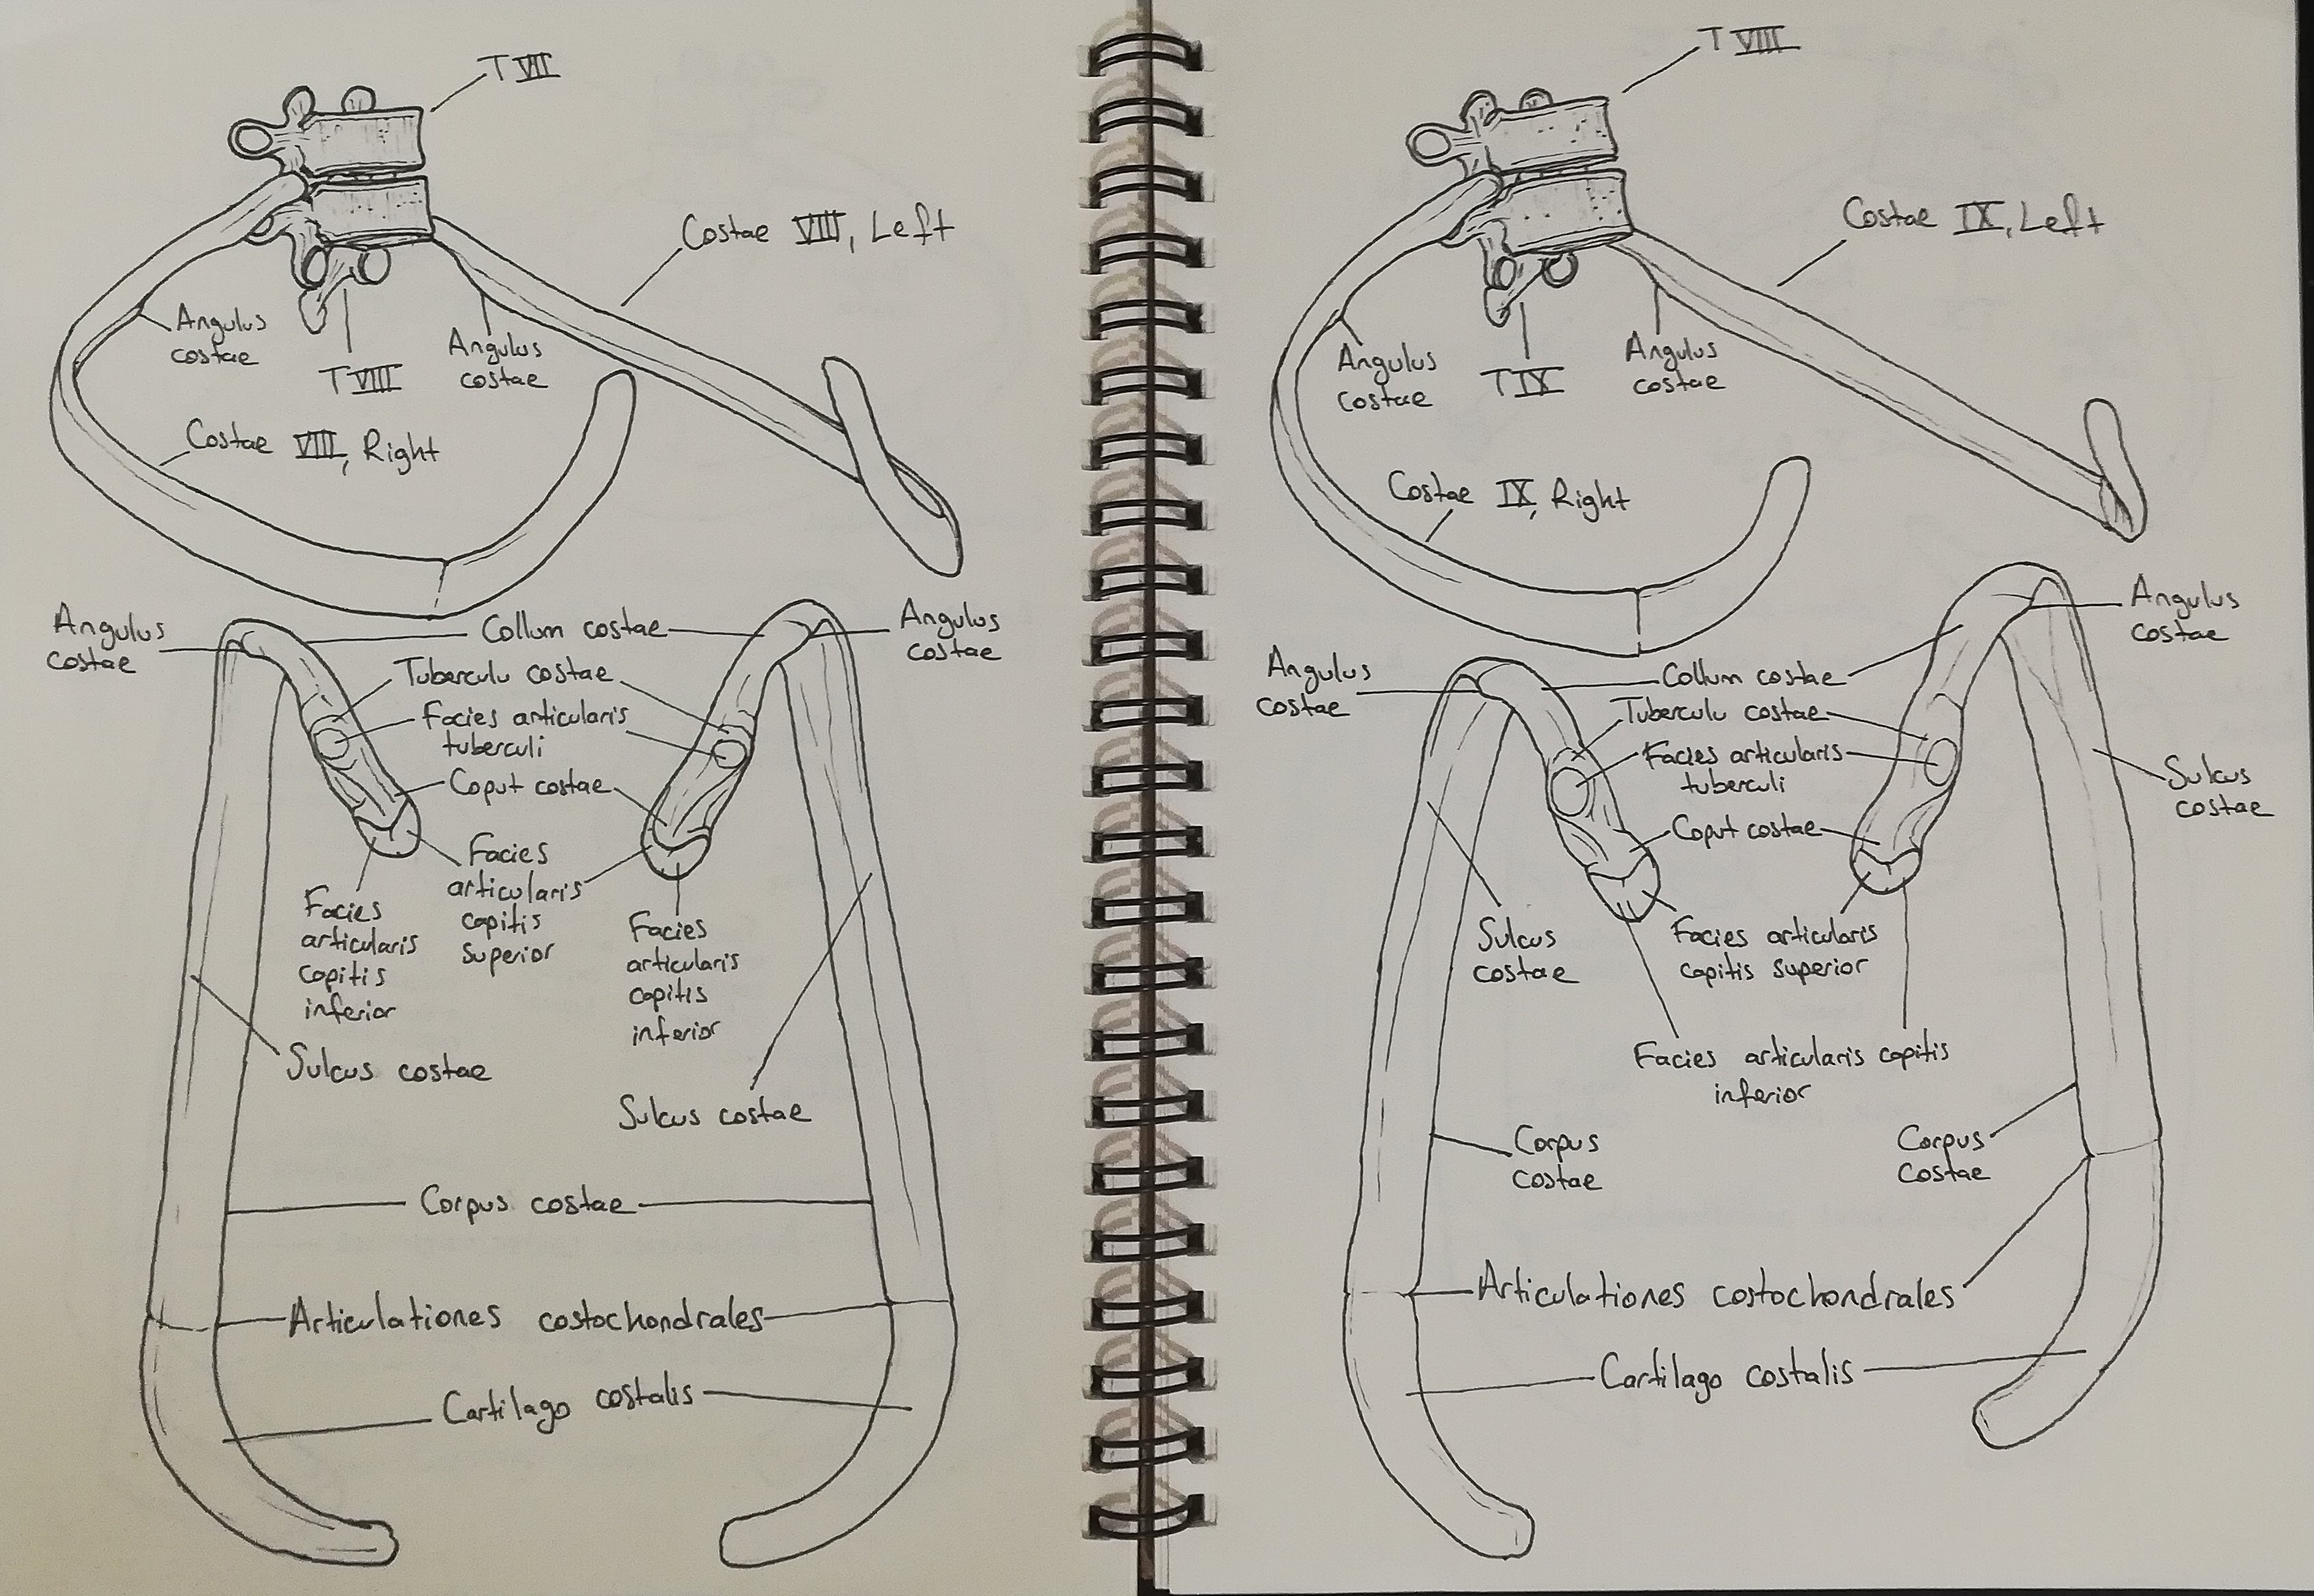 T VII
Costae VIII, Left
Angulus
costae
T VIII
Angulus
costae
Costae VIII, Right
Angulus
costae
Collum costae
Angulus
costae
Tuberculu costae
Facies articularis
tuberculi
Coput costae
Facies
articularis
capitis
superior
Facies
articularis
copitis
inferior
Facies
articularis
copitis
inferior
Sulcus costae
Sulcus costae
Corpus costae
Articulationes costochondrales
Cartilago costalis
T VIII
Costae IX, Left
Angulus
costae
T IX
Angulus
costae
Costae IX, Right
Angulus
costae
Angulus
costae
Collum costae
Tuberculu costae
Facies articularis
tuberculi
Coput costae
Sulcus
costae
Sulcus
costae
Facies articularis
capitis superior
Facies articularis capitis
inferior
Corpus
costae
Corpus
costae
Articulationes costochondrales
Cartilago costalis